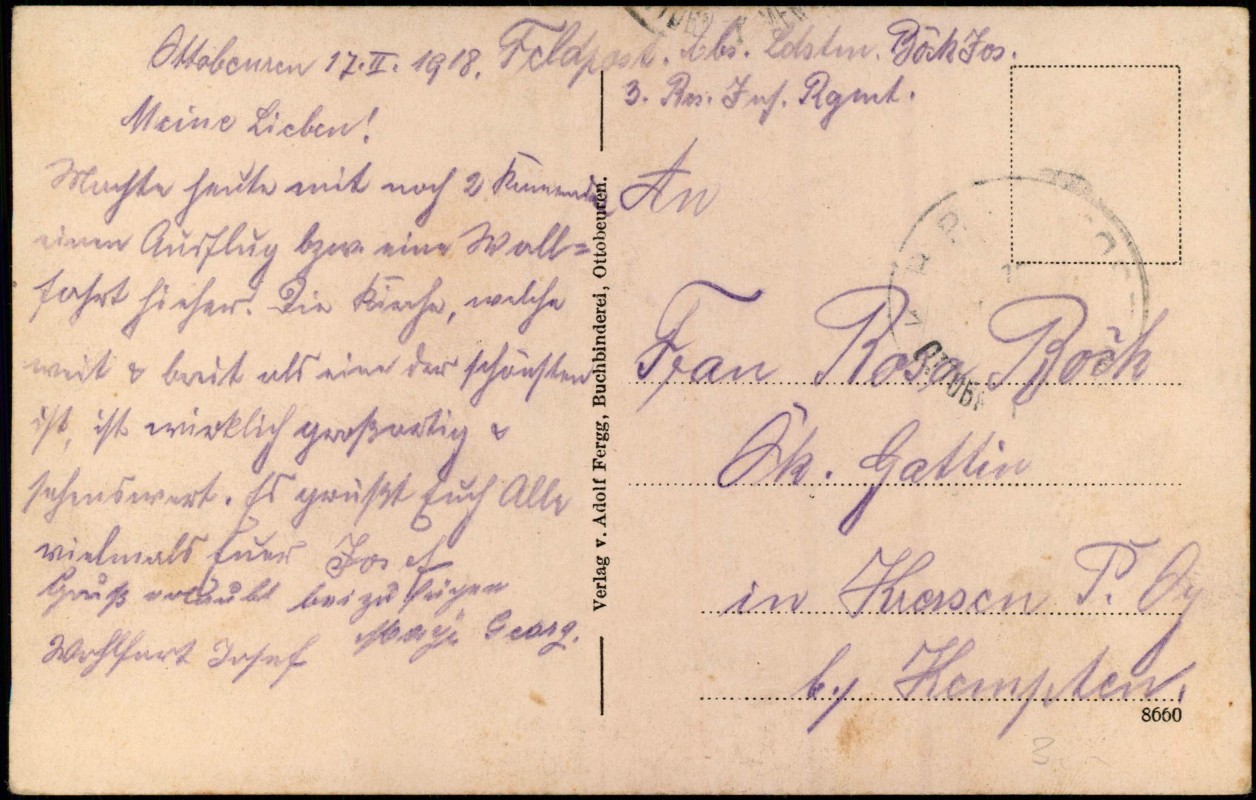 Ottobeuren 17.II.1918. Feldpost. Abs. Ldstm. Böck Jos.
3. Res. Inf. Rgmt.
Meine Lieben!
Machte heute mit noch 2 Kameraden
einen Ausflug bzw. eine Wall=
fahrt hieher. Die Kirche, welche
weit & breit als eine der schönsten
ist, ist wirklich großartig &
sehenswert. Es grüßt Euch Alle
vielmals Euer Josef
Gruß erlaubt beizufügen
Georg.
Wohlfart Josef
Verlag v. Adolf Fergg, Buchbinderei, Ottobeuren.
An
Frau Rosa Böck
Ök. Gattin
in P. Oy
b/ Kempten.
8660